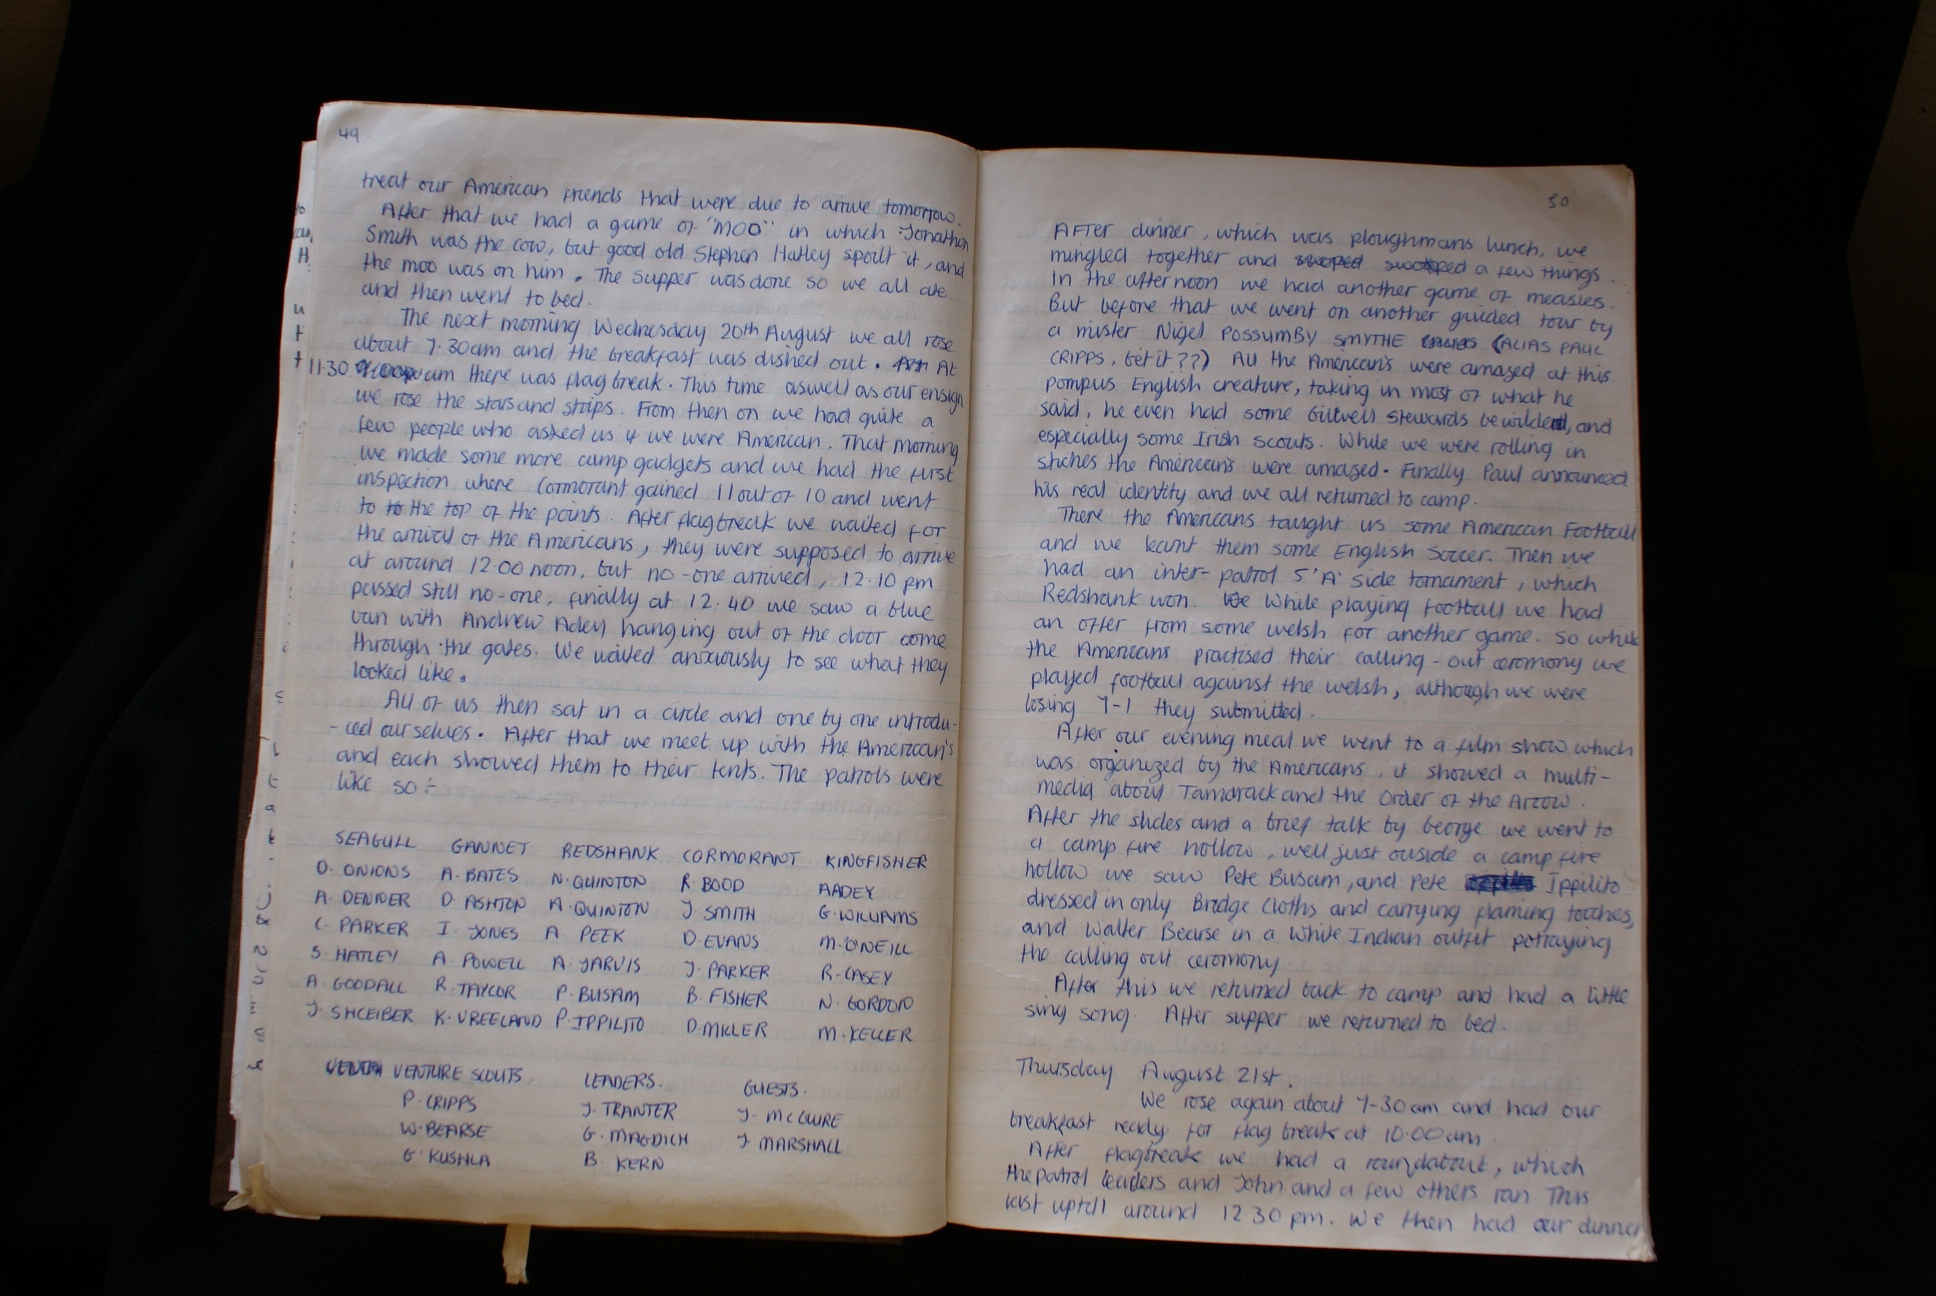 49
treat our American friends that were due to arrive tomorrow.
After that we had a game of "MOO" in which Jonathon
Smith was the cow, but good old Stephen Hatley spoilt it, and
the moo was on him. The supper was done so we all ate
and then went to bed.
The next morning Wednesday 20th August we all rose
about 7.30am and the breakfast was dished out. At
11.30 am there was flag break. This time aswell as our ensign
we rose the stars and strips. From then on we had quite a
few people who asked us if we were American. That morning
we made some more camp gadgets and we had the first
inspection where Cormorant gained 11 out of 10 and went
to to the top of the points. After flagbreak we waited for
the arrival of the Americans, they were supposed to arrive
at around 12.00 noon, but no-one arrived, 12.10 pm
passed still no-one, finally at 12.40 we saw a blue
van with Andrew Adey hanging out of the door come
through the gates. We waited anxiously to see what they
looked like.
All of us then sat in a circle and one by one introdu-
-ced ourselves. After that we meet up with the American's
and each showed them to their tents. The patrols were
like so :-
SEAGULL GANNET REDSHANK CORMORANT KINGFISHER
D. ONIONS A. BATES N. QUINTON R. BOOD A ADEY
A. DENNER D ASHTON A. QUINTON J. SMITH G. WILLIAMS
C. PARKER I. JONES A. PEEK D. EVANS M. O'NEILL
S. HATLEY A. POWELL A. JARVIS J. PARKER R. CASEY
A. GOODALL R. TAYLOR P. BUSAM B. FISHER N. GORDON
J. SHCEIBER K. VREELAND P. IPPILITO D. MILLER M. KELLER
VENTURE SCOUTS. LEADERS. GUESTS.
P. CRIPPS J. TRANTER J. McGUIRE
W. BEARSE G. MAGDICH J. MARSHALL
G. KUSHLA B. KERN
50
AFTER dinner, which was ploughmans lunch, we
mingled together and swoped swopped a few things.
In the afternoon we had another game of measles.
But before that we went on another guided tour by
a mister Nigel POSSUMBY SMYTHE (ALIAS PAUL
CRIPPS, Get it??) All the American's were amazed at this
pompus English creature, taking in most of what he
said, he even had some Gillwell stewards bewildered, and
especially some Irish scouts. While we were rolling in
stiches the American's were amazed. Finally Paul announced
his real identity and we all returned to camp.
There the Americans taught us some American Football
and we learnt them some English Soccer. Then we
had an inter-patrol 5 'A' side tornament, which
Redshank won. We While playing football we had
an offer from some welsh for another game. So while
the Americans practised their calling-out ceremony we
played football against the welsh, although we were
losing 7-1 they submitted.
After our evening meal we went to a film show which
was organized by the Americans, it showed a multi-
media about Tamarack and the Order of the Arrow.
After the slides and a brief talk by George we went to
a camp fire hollow, well just outside a camp fire
hollow we saw Pete Busam, and Pete Ippilito
dressed in only Bridge Cloths and carrying flaming torches,
and Walter Bearse in a White Indian outfit potraying
the calling out ceremony.
After this we returned back to camp and had a little
sing song. After supper we returned to bed.
Thursday August 21st.
We rose again about 7-30am and had our
breakfast ready for flag break at 10.00am.
After flagbreak we had a roundabout, which
the patrol leaders and John and a few others ran This
last uptill around 12.30 pm. We then had our dinner